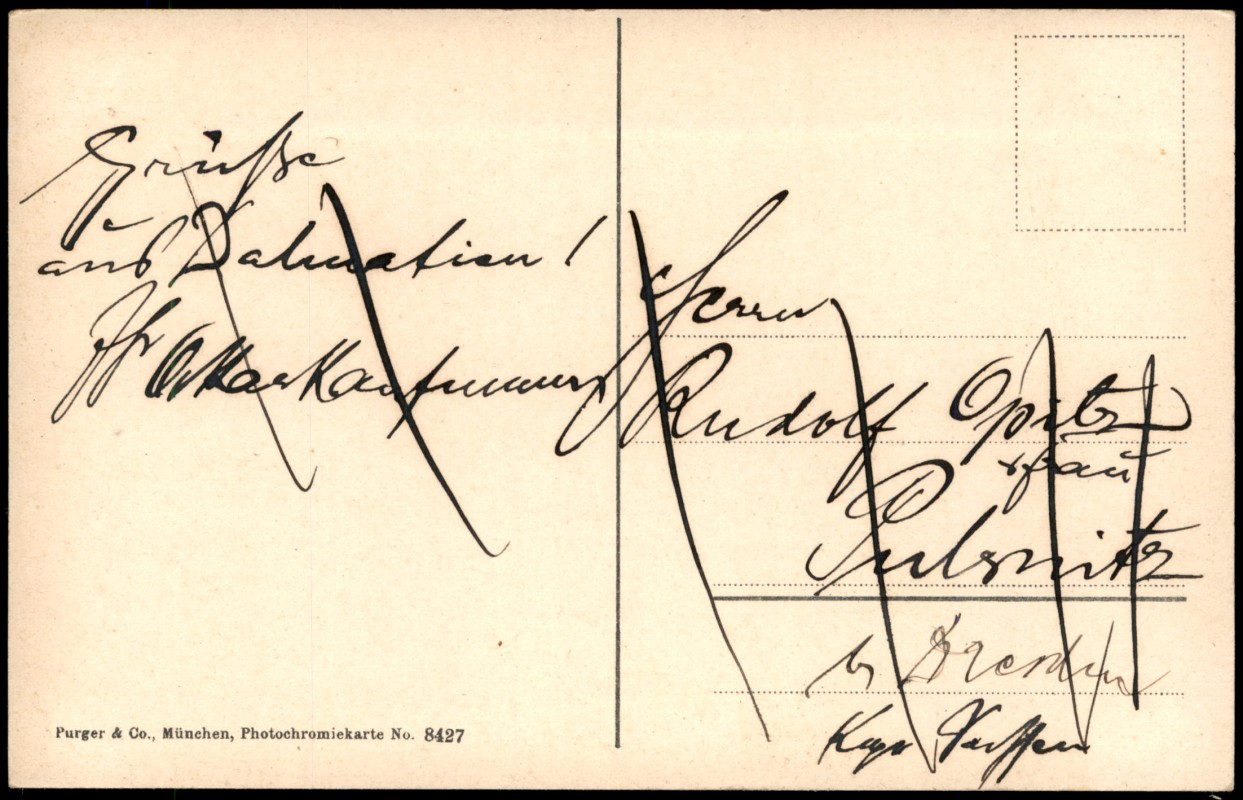 Grüße
aus Dalmatien!
Ihr Kaufmann
Herrn
Rudolf Opitz
Pulsnitz
b Dresden
Sachsen
Purger & Co., München, Photochromiekarte No. 8427